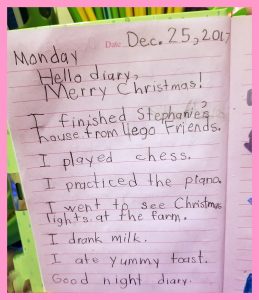 Date Dec. 25, 2017
Monday
Hello diary,
Merry Christmas!
I finished Stephanie's
house from Lego Friends.
I played chess.
I practiced the piano.
I went to see Christmas
lights at the farm.
I drank milk.
I ate yummy toast.
Good night diary.